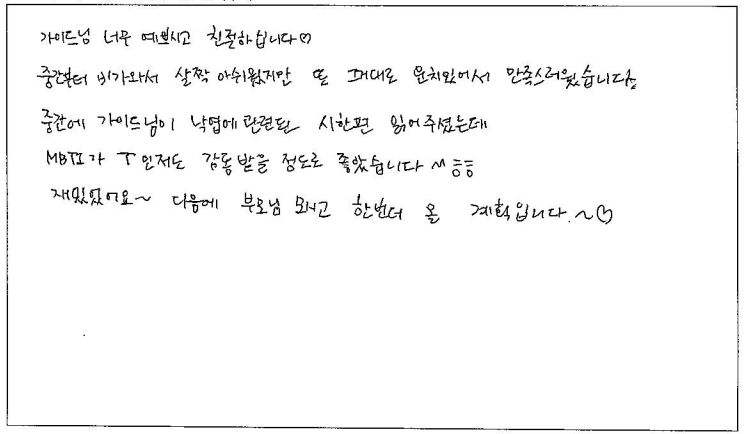 가이드님 너무 예쁘시고 친절하십니다♡
중간부터 비가와서 살짝 아쉬웠지만 또 그대로 운치있어서 만족스러웠습니다
중간에 가이드님이 낙엽에 관련된 시한편 읽어주셨는데
MBTI가 T인저도 감동받을 정도로 좋았습니다 ㅠㅠ
재밌었어요~ 다음에 부모님 모시고 한번더 올 계획입니다.~♡